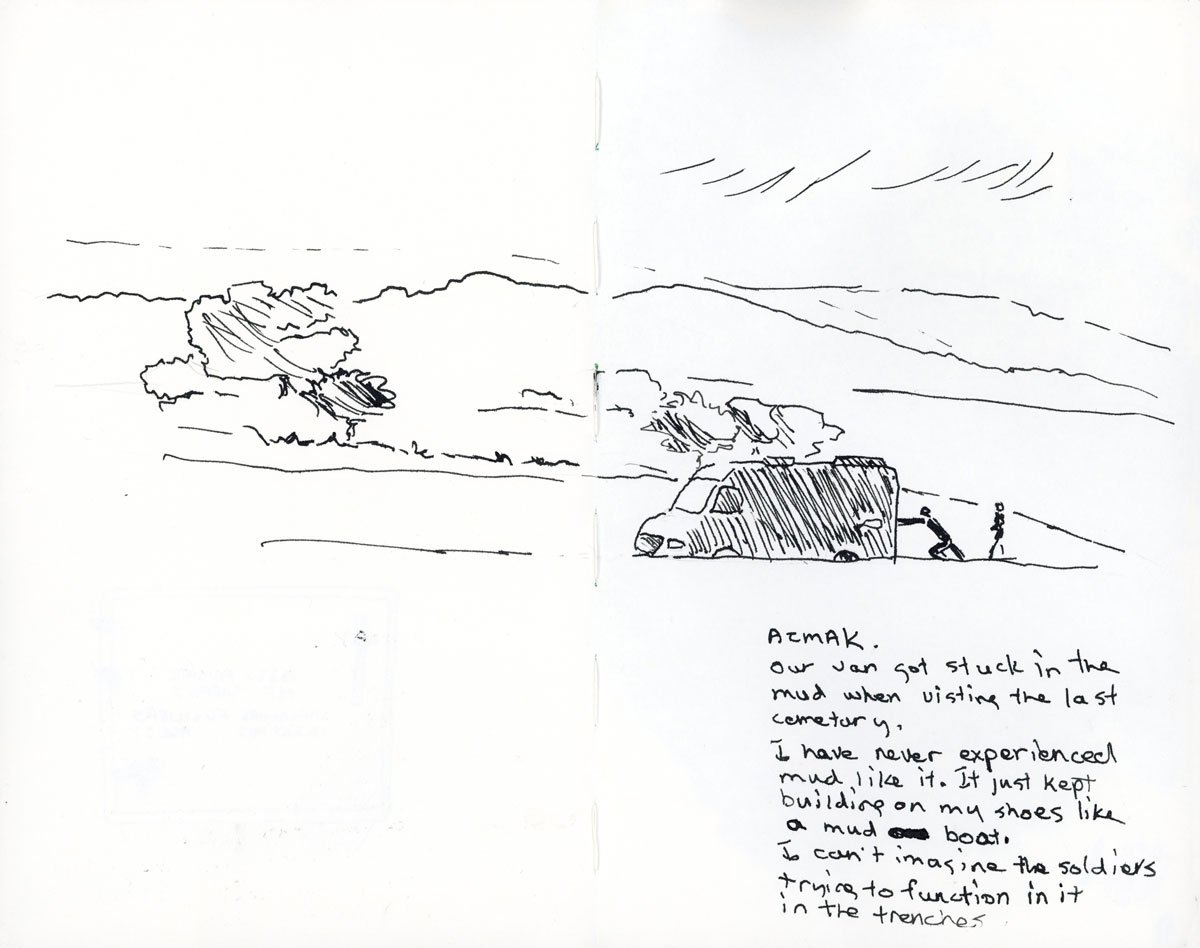 AZMAK.
Our van got stuck in the
mud when visting the last
cemetory.
I have never experienced
mud like it. It just kept
building on my shoes like
a mud boat.
I can't imagine the soldiers
trying to function in it
in the trenches